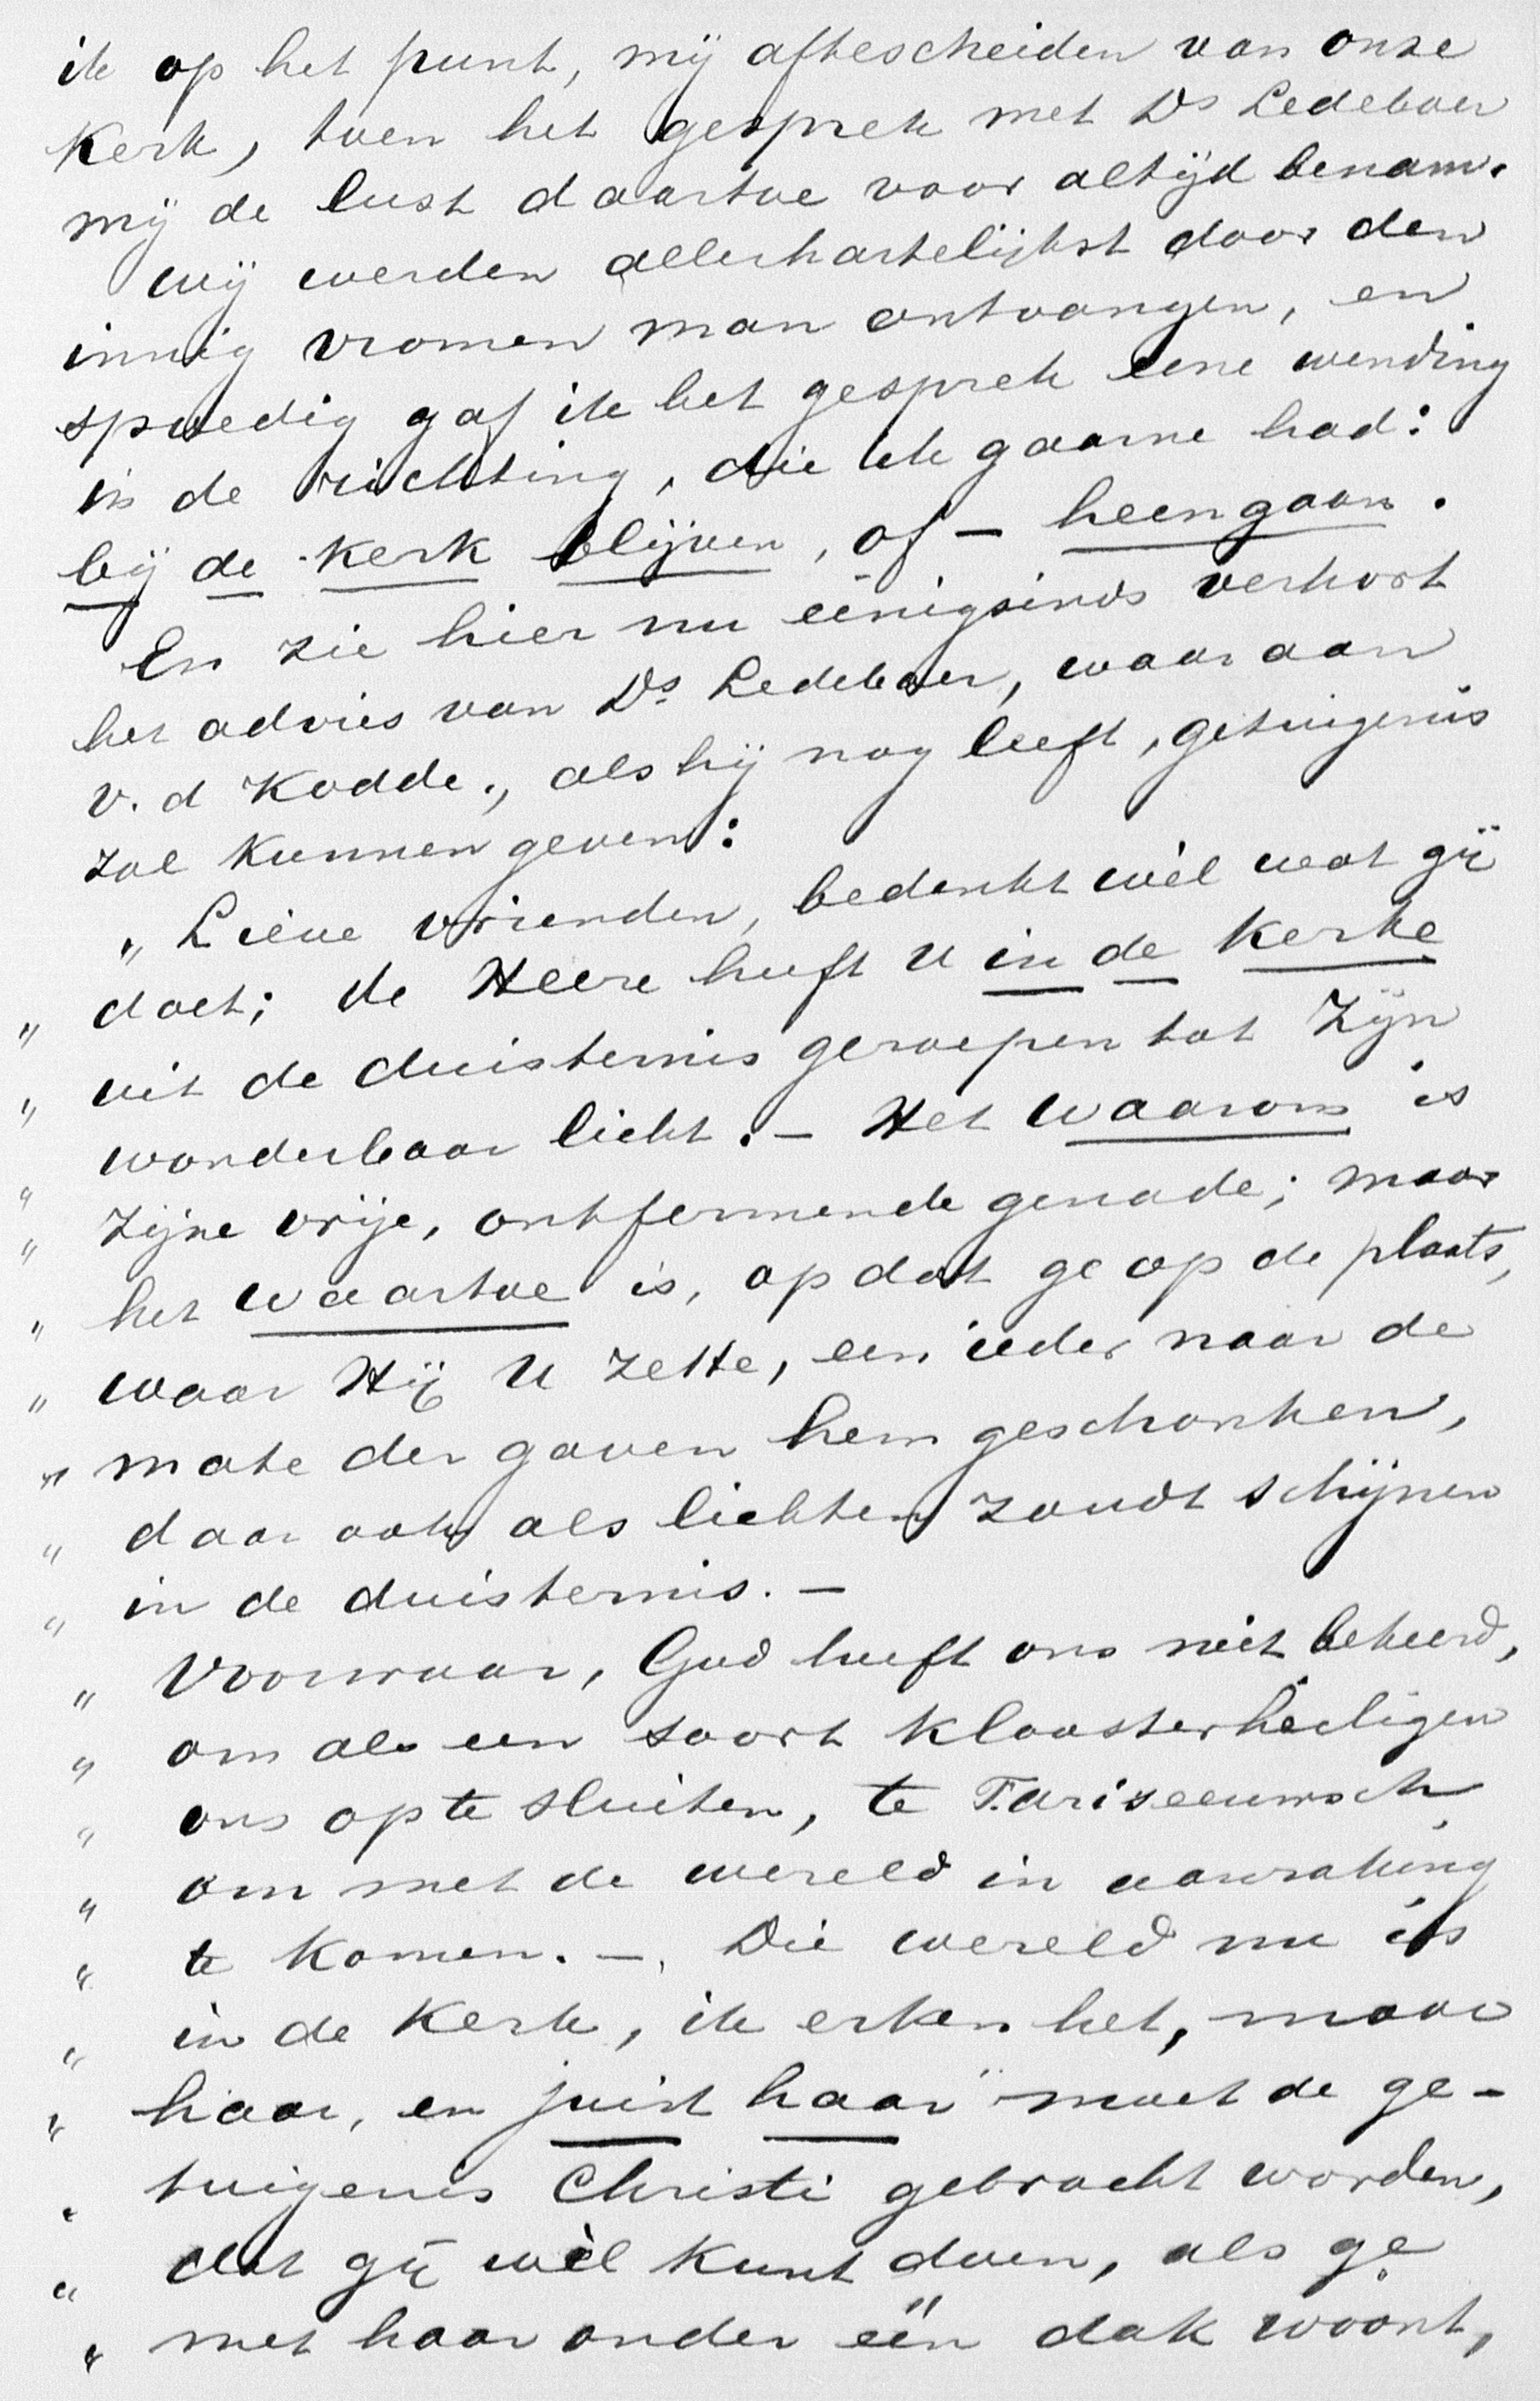 ik op het punt, mij aftescheiden van onze
Kerk, toen het gesprek met Ds Ledeboer
mij de lust daartoe voor altijd benam.
Wij werden allerhartelijkst door den
innig vromen man ontvangen, en
spoedig gaf ik het gesprek eene wending
in de richting, die ik gaarne had:
bij de Kerk blijven, of – heengaan.
En zie hier nu eenigsinds verkort
het advies van Ds Ledeboer, waaraan
v.d Kodde., als hij nog leeft, getuigenis
zal kunnen geven:
„ Lieve vrienden, bedenkt wèl wat gij
„ doet; de Heere heeft U in de Kerke
„ uit de duisternis geroepen tot Zijn
„ wonderbaar licht. – Het waarom is
„ Zijne vrije, ontfermende genade; maar
„ het waartoe is, opdat ge op de plaats,
„ waar Hij U zette, een ieder naar de
„ mate der gaven hem geschonken,
„ daar ook als lichten zoudt schijnen
„ in de duisternis. –
„ Voorwaar, God heeft ons niet bekeerd,
„ om als een soort Kloosterheiligen
„ ons op te sluiten, te Fariseeuwsch
„ om met de wereld in aanraking
„ te Komen. – Die wereld nu is
„ in de Kerk, ik erken het, maar
„ haar, en juist haar moet de ge-
„ tuigenis Christi gebracht worden,
„ dat gij wèl Kunt doen, als ge
„ met haar onder één dak woont,